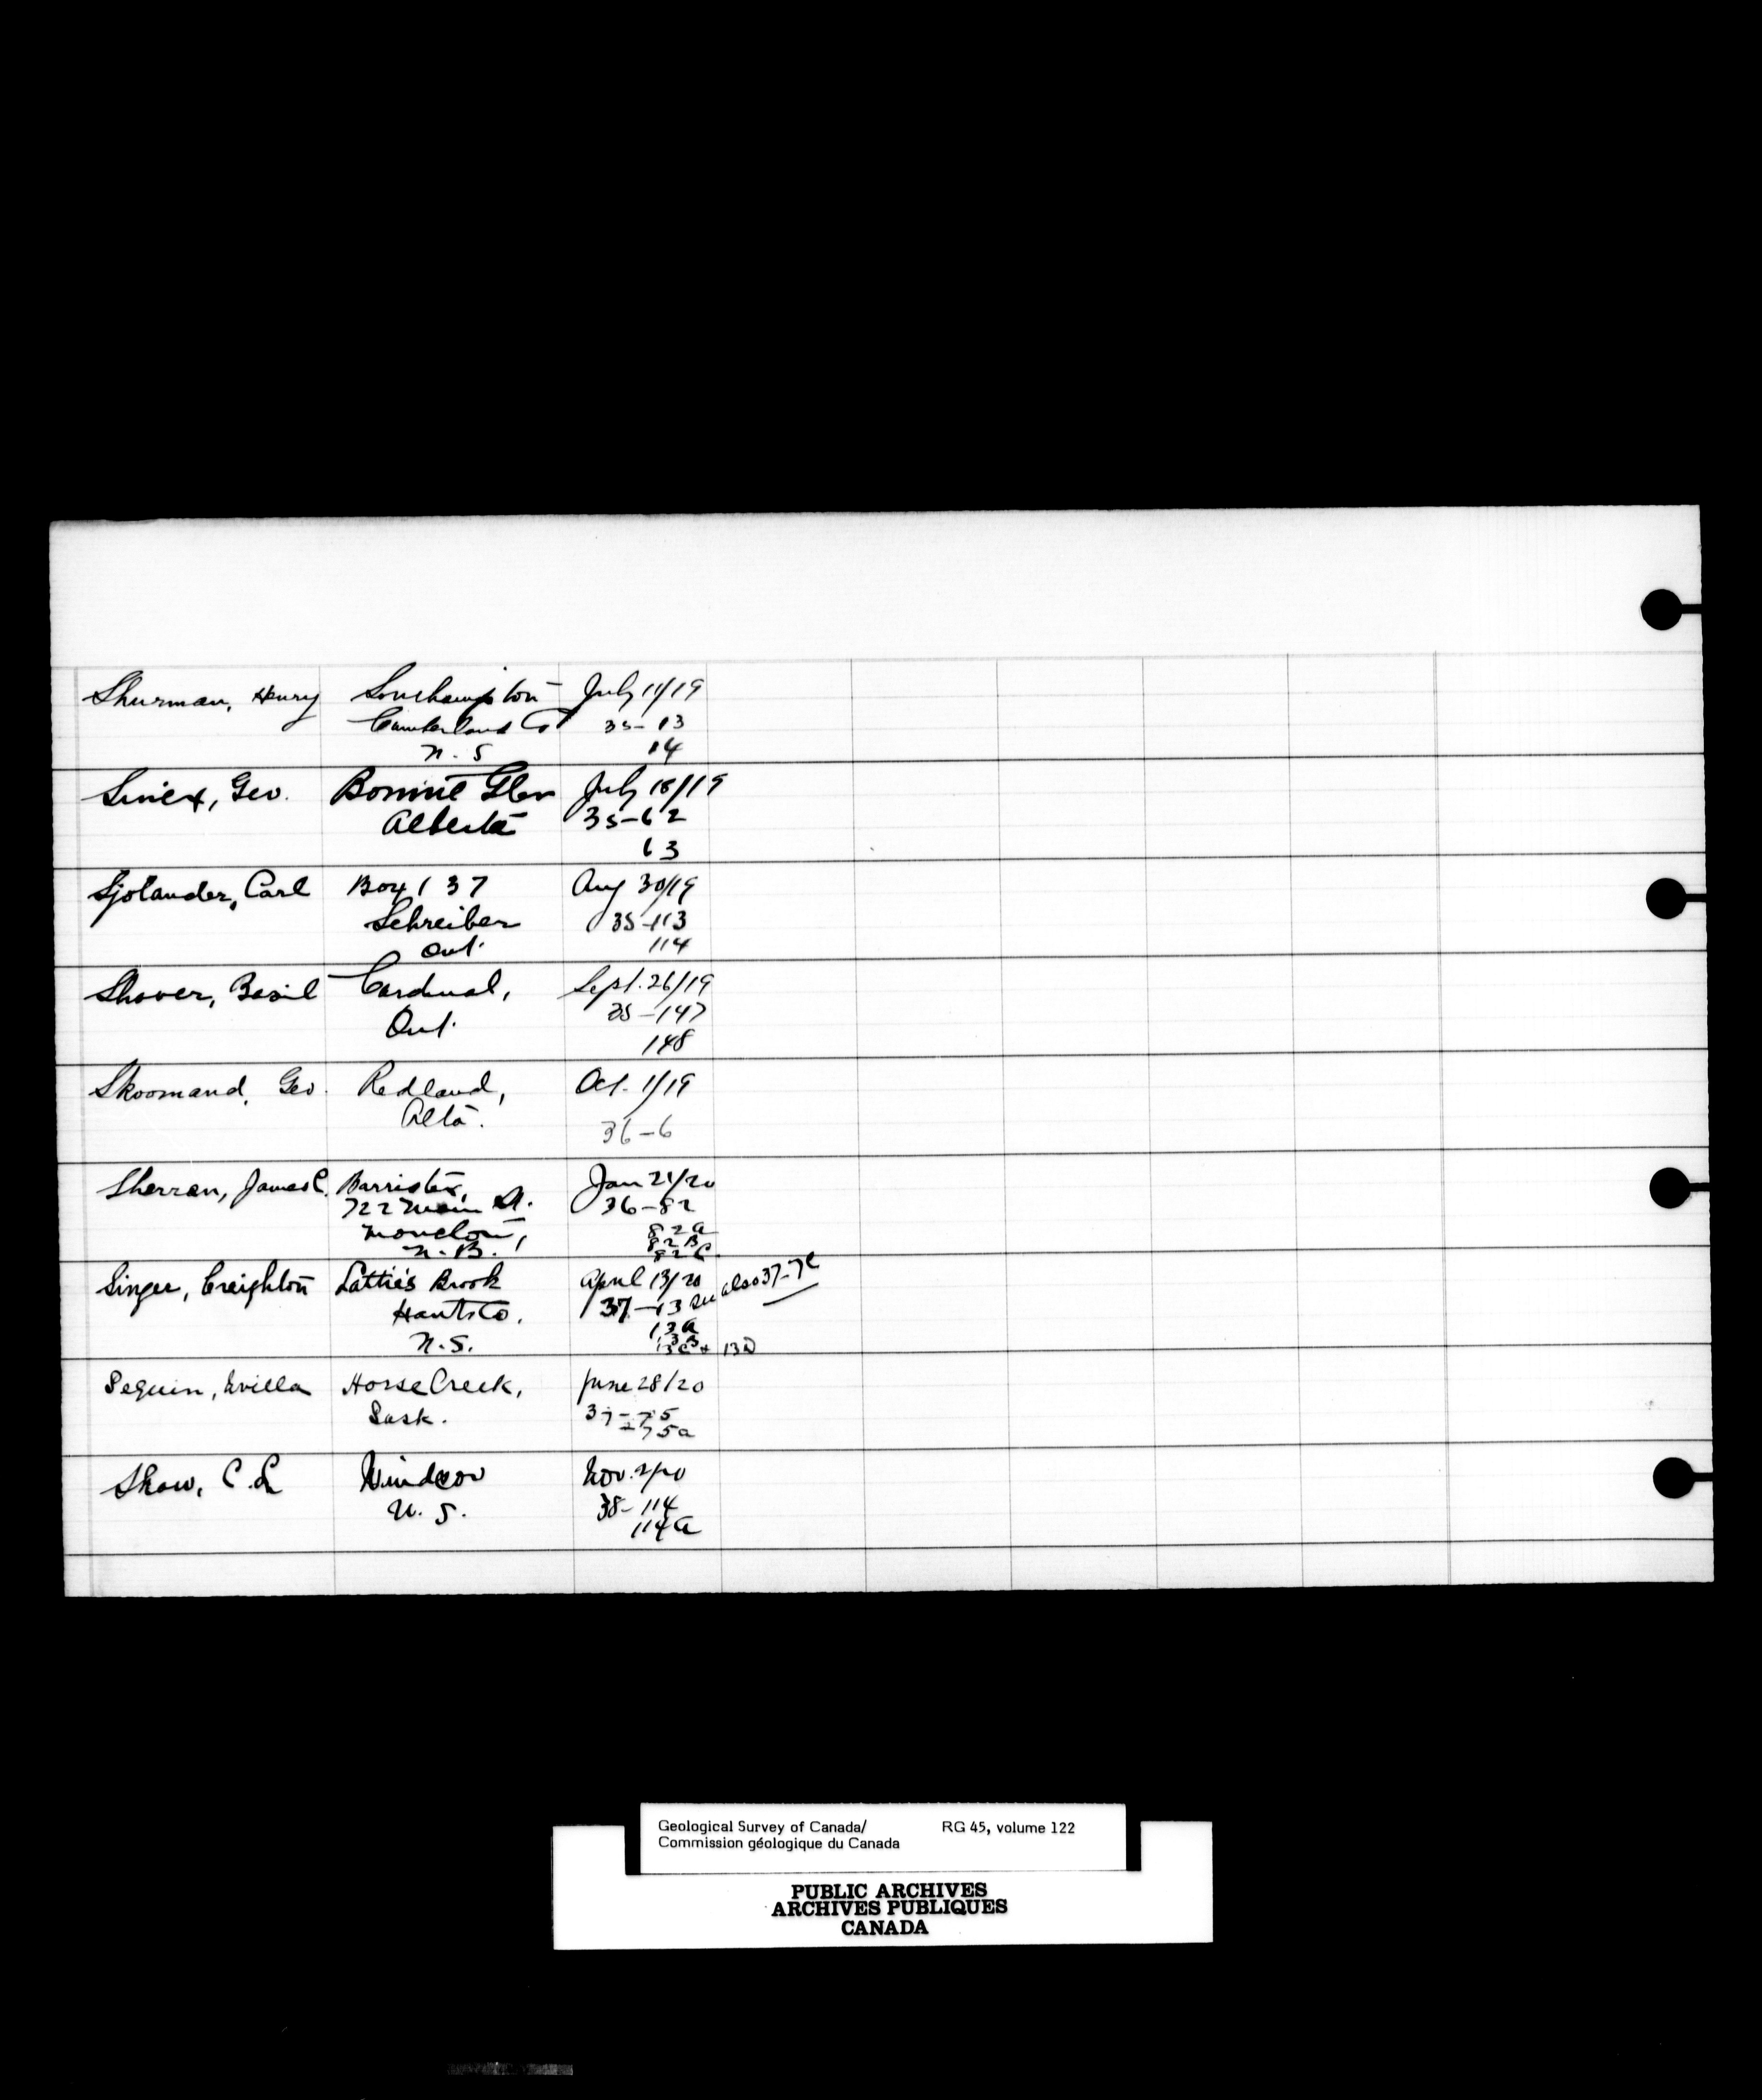 Shurman, Henry
Southampton
Cumberland Co
N. S
July 11/19
35-13
14
Sinex, Geo.
Bonnie Glen
Alberta
July 18/19
35-62
63
Sjolander, Carl
Box 137
Schreiber
Ont.
Aug 30/19
35-113
114
Shaver, Basil
Cardinal,
Ont.
Sept. 26/19
35-147
148
Skoomand, Geo.
Redland,
Alta.
Oct. 1/19
36-6
Sherren, James C.
Barrister,
722 Main St.
Moncton,
N. B.
Jan 21/20
36-82
82a
82B
82C
Singer, Creighton
Lattie's Brook
Hants Co.
N. S.
April 13/20
37-13 see also 37-7c
13a
13B
13c + 13D
Seguin,
Horse Creek,
Sask.
June 28/20
37-75
-75a
Shaw, C. L
Windsor
N. S.
Nov. 2/20
38-114
114a
Geological Survey of Canada/ RG 45, volume 122
Commission géologique du Canada
PUBLIC ARCHIVES
ARCHIVES PUBLIQUES
CANADA